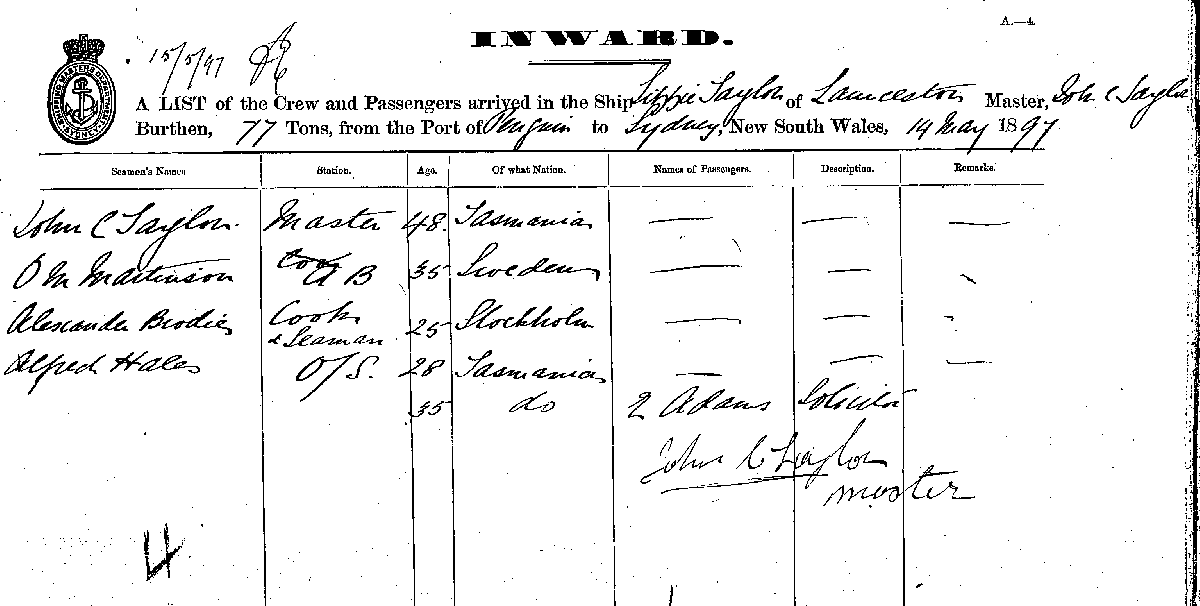 A.—4.
INWARD.
15/5/97
A LIST of the Crew and Passengers arrived in the Ship Lizzie Taylor of Launceston Master, John C Taylor
Burthen, 77 Tons, from the Port of Penguin to Sydney, New South Wales, 14 May 1897
Seamen's Names Station. Age. Of what Nation. Names of Passengers. Description. Remarks.
John C Taylor Master 48 Tasmania — — —
O M Martinson Cook A B 35 Sweden — —
Alexander Brodie Cook & Seaman 25 Stockholm — —
Alfred Hales O/S. 28 Tasmania — — —
35 do Adams Solicitor
John C Taylor
master
4